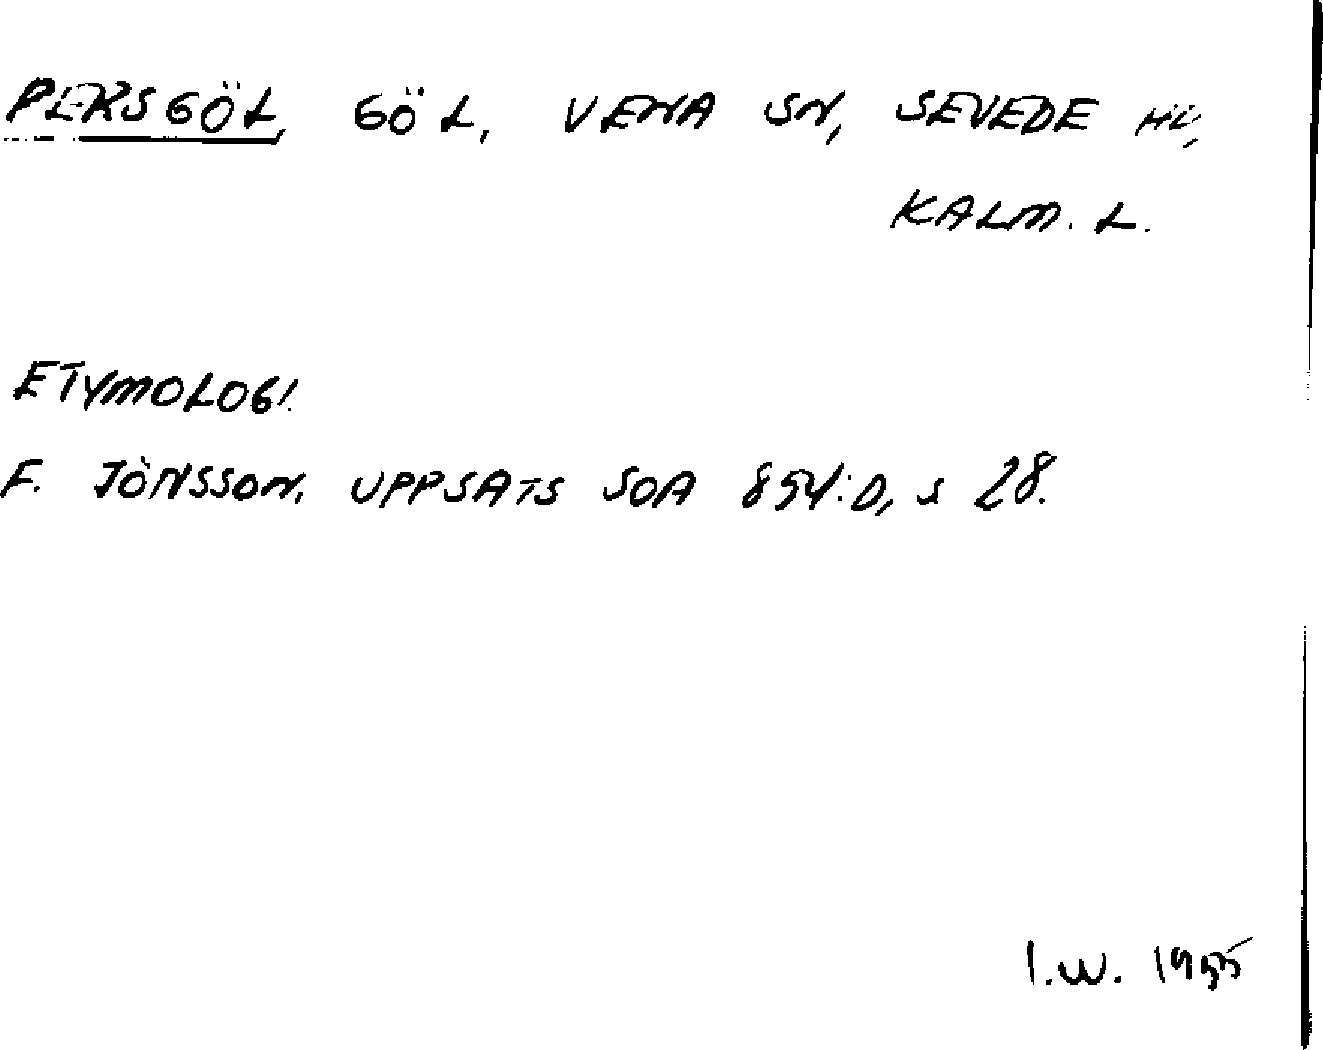 PERSGÖL, GÖL, VENA SN, SEVEDE HD,
KALM. L.
ETYMOLOGI.
F. JÖNSSON, UPPSATS SOA 854:D, s 28.
I.W. 1955